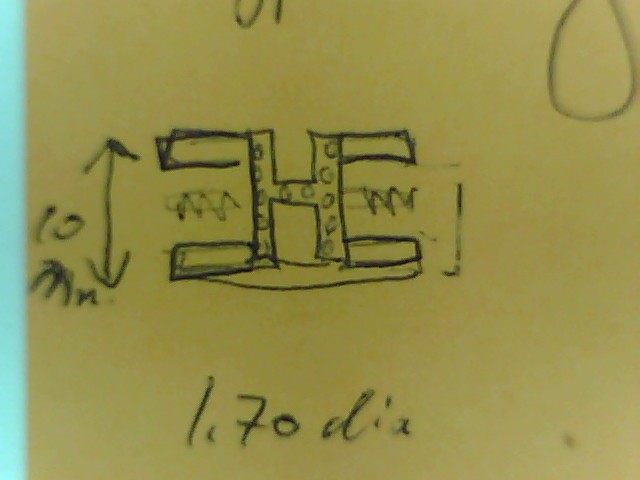 10
mm
1.70 dia